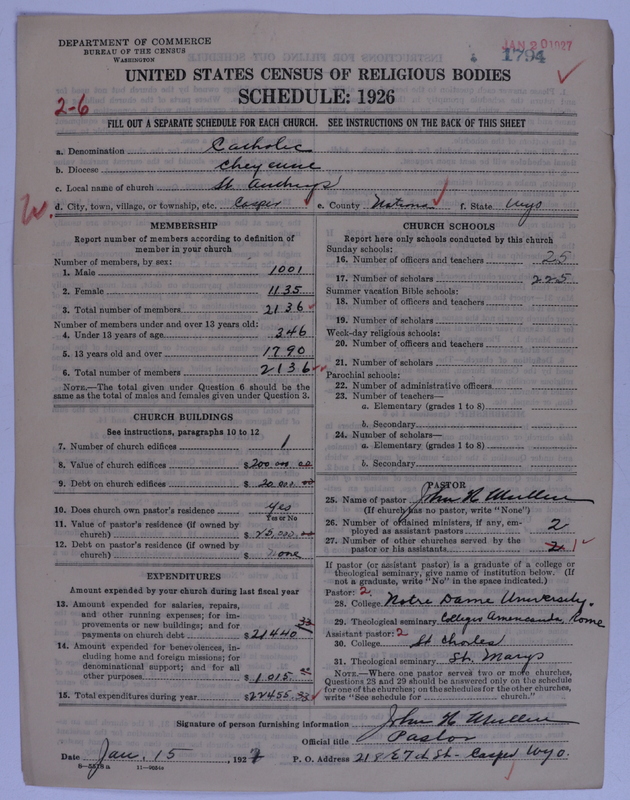 DEPARTMENT OF COMMERCE
BUREAU OF THE CENSUS
WASHINGTON
JAN 20 1927
1794
UNITED STATES CENSUS OF RELIGIOUS BODIES
SCHEDULE: 1926
2-6
FILL OUT A SEPARATE SCHEDULE FOR EACH CHURCH. SEE INSTRUCTIONS ON THE BACK OF THIS SHEET
a. Denomination Catholic
b. Diocese Cheyenne
c. Local name of church St. Anthonys
d. City, town, village, or township, etc. Casper e. County Natrona f. State Wyo
MEMBERSHIP
Report number of members according to definition of
member in your church
Number of members, by sex:
1. Male 1001
2. Female 1135
3. Total number of members 2136
Number of members under and over 13 years old:
4. Under 13 years of age 346
5. 13 years old and over 1790
6. Total number of members 2136
NOTE.—The total given under Question 6 should be the
same as the total of males and females given under Question 3.
CHURCH BUILDINGS
See instructions, paragraphs 10 to 12
7. Number of church edifices 1
8. Value of church edifices $200 000 00
9. Debt on church edifices $20.000 00
10. Does church own pastor's residence Yes
Yes or No
11. Value of pastor's residence (if owned by
church) $25,000 00
12. Debt on pastor's residence (if owned by
church) $ none
EXPENDITURES
Amount expended by your church during last fiscal year
13. Amount expended for salaries, repairs,
and other running expenses; for im-
provements or new buildings; and for
payments on church debt $21440 33
14. Amount expended for benevolences, in-
cluding home and foreign missions; for
denominational support; and for all
other purposes $1015
15. Total expenditures during year $22455 33
CHURCH SCHOOLS
Report here only schools conducted by this church
Sunday schools:
16. Number of officers and teachers 25
17. Number of scholars 225
Summer vacation Bible schools:
18. Number of officers and teachers
19. Number of scholars
Week-day religious schools:
20. Number of officers and teachers
21. Number of scholars
Parochial schools:
22. Number of administrative officers
23. Number of teachers—
a. Elementary (grades 1 to 8)
b. Secondary
24. Number of scholars—
a. Elementary (grades 1 to 8)
b. Secondary
PASTOR
25. Name of pastor John H Mullin
(If church has no pastor, write "None")
26. Number of ordained ministers, if any, em-
ployed as assistant pastors 2
27. Number of other churches served by the
pastor or his assistants 2 1
If pastor (or assistant pastor) is a graduate of a college or
theological seminary, give name of institution below. (If
not a graduate, write "No" in the space indicated.)
Pastor: 2
28. College Notre Dame University.
29. Theological seminary Collegio Rome
Assistant pastor: 2
30. College St Charles
31. Theological seminary St. Marys
NOTE.—Where one pastor serves two or more churches,
Questions 28 and 29 should be answered only on the schedule
for one of the churches; on the schedules for the other churches,
write "See schedule for church."
Signature of person furnishing information John H Mullin
Official title Pastor
Date Jan. 15, 1927 P. O. Address 218 E 7th St- Casper Wyo.
8—5518a 11—9024a